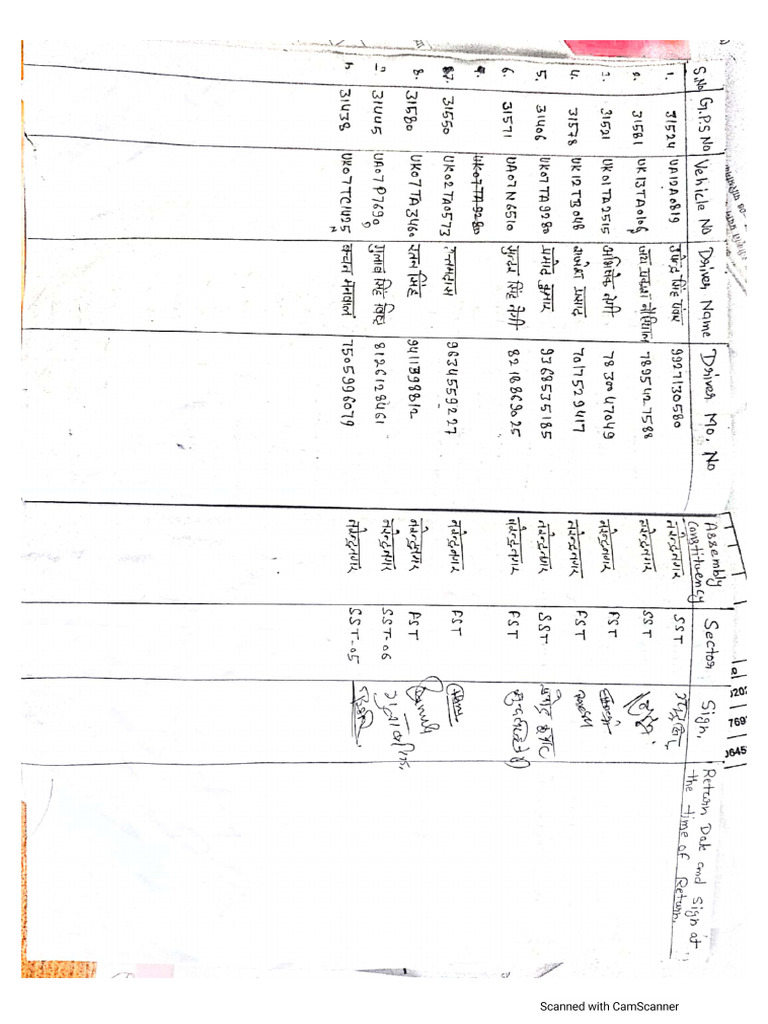 S.No G.P.S No Vehicle No Driver Name Driver Mo. No Assembly Constituency Sector Sign. Return Date and Sign at the time of Return.
1. 31524 UA12A0819 9927130580 नरेन्द्रनगर SST
2. 31581 UK13TA0106 जय प्रकाश नौटियाल 7895427588 नरेन्द्रनगर SST
3. 31521 UK01TA2515 अभिषेक नेगी 7830047049 नरेन्द्रनगर FST
4. 31578 UK12TB048 प्रसाद 7017529417 नरेन्द्रनगर FST
5. 31406 UK07TA9280 प्रमोद कुमार 9368535185 नरेन्द्रनगर SST प्रमोद कुमार
6. 31571 UA07N6510 सुन्दर सिंह नेगी 8218869025 नरेन्द्रनगर FST
7. UK07TA9280
7. 31550 UK02TA0573 9634559227 नरेन्द्रनगर FST
8. 31580 UK07TA3460 रतन सिंह 9411398812 नरेन्द्रनगर FST
31445 UA07P7690 गुलाब सिंह बिष्ट 8126128461 नरेन्द्रनगर SST-06
31438 UK07TC1425 7505996079 नरेन्द्रनगर SST-05
Scanned with CamScanner